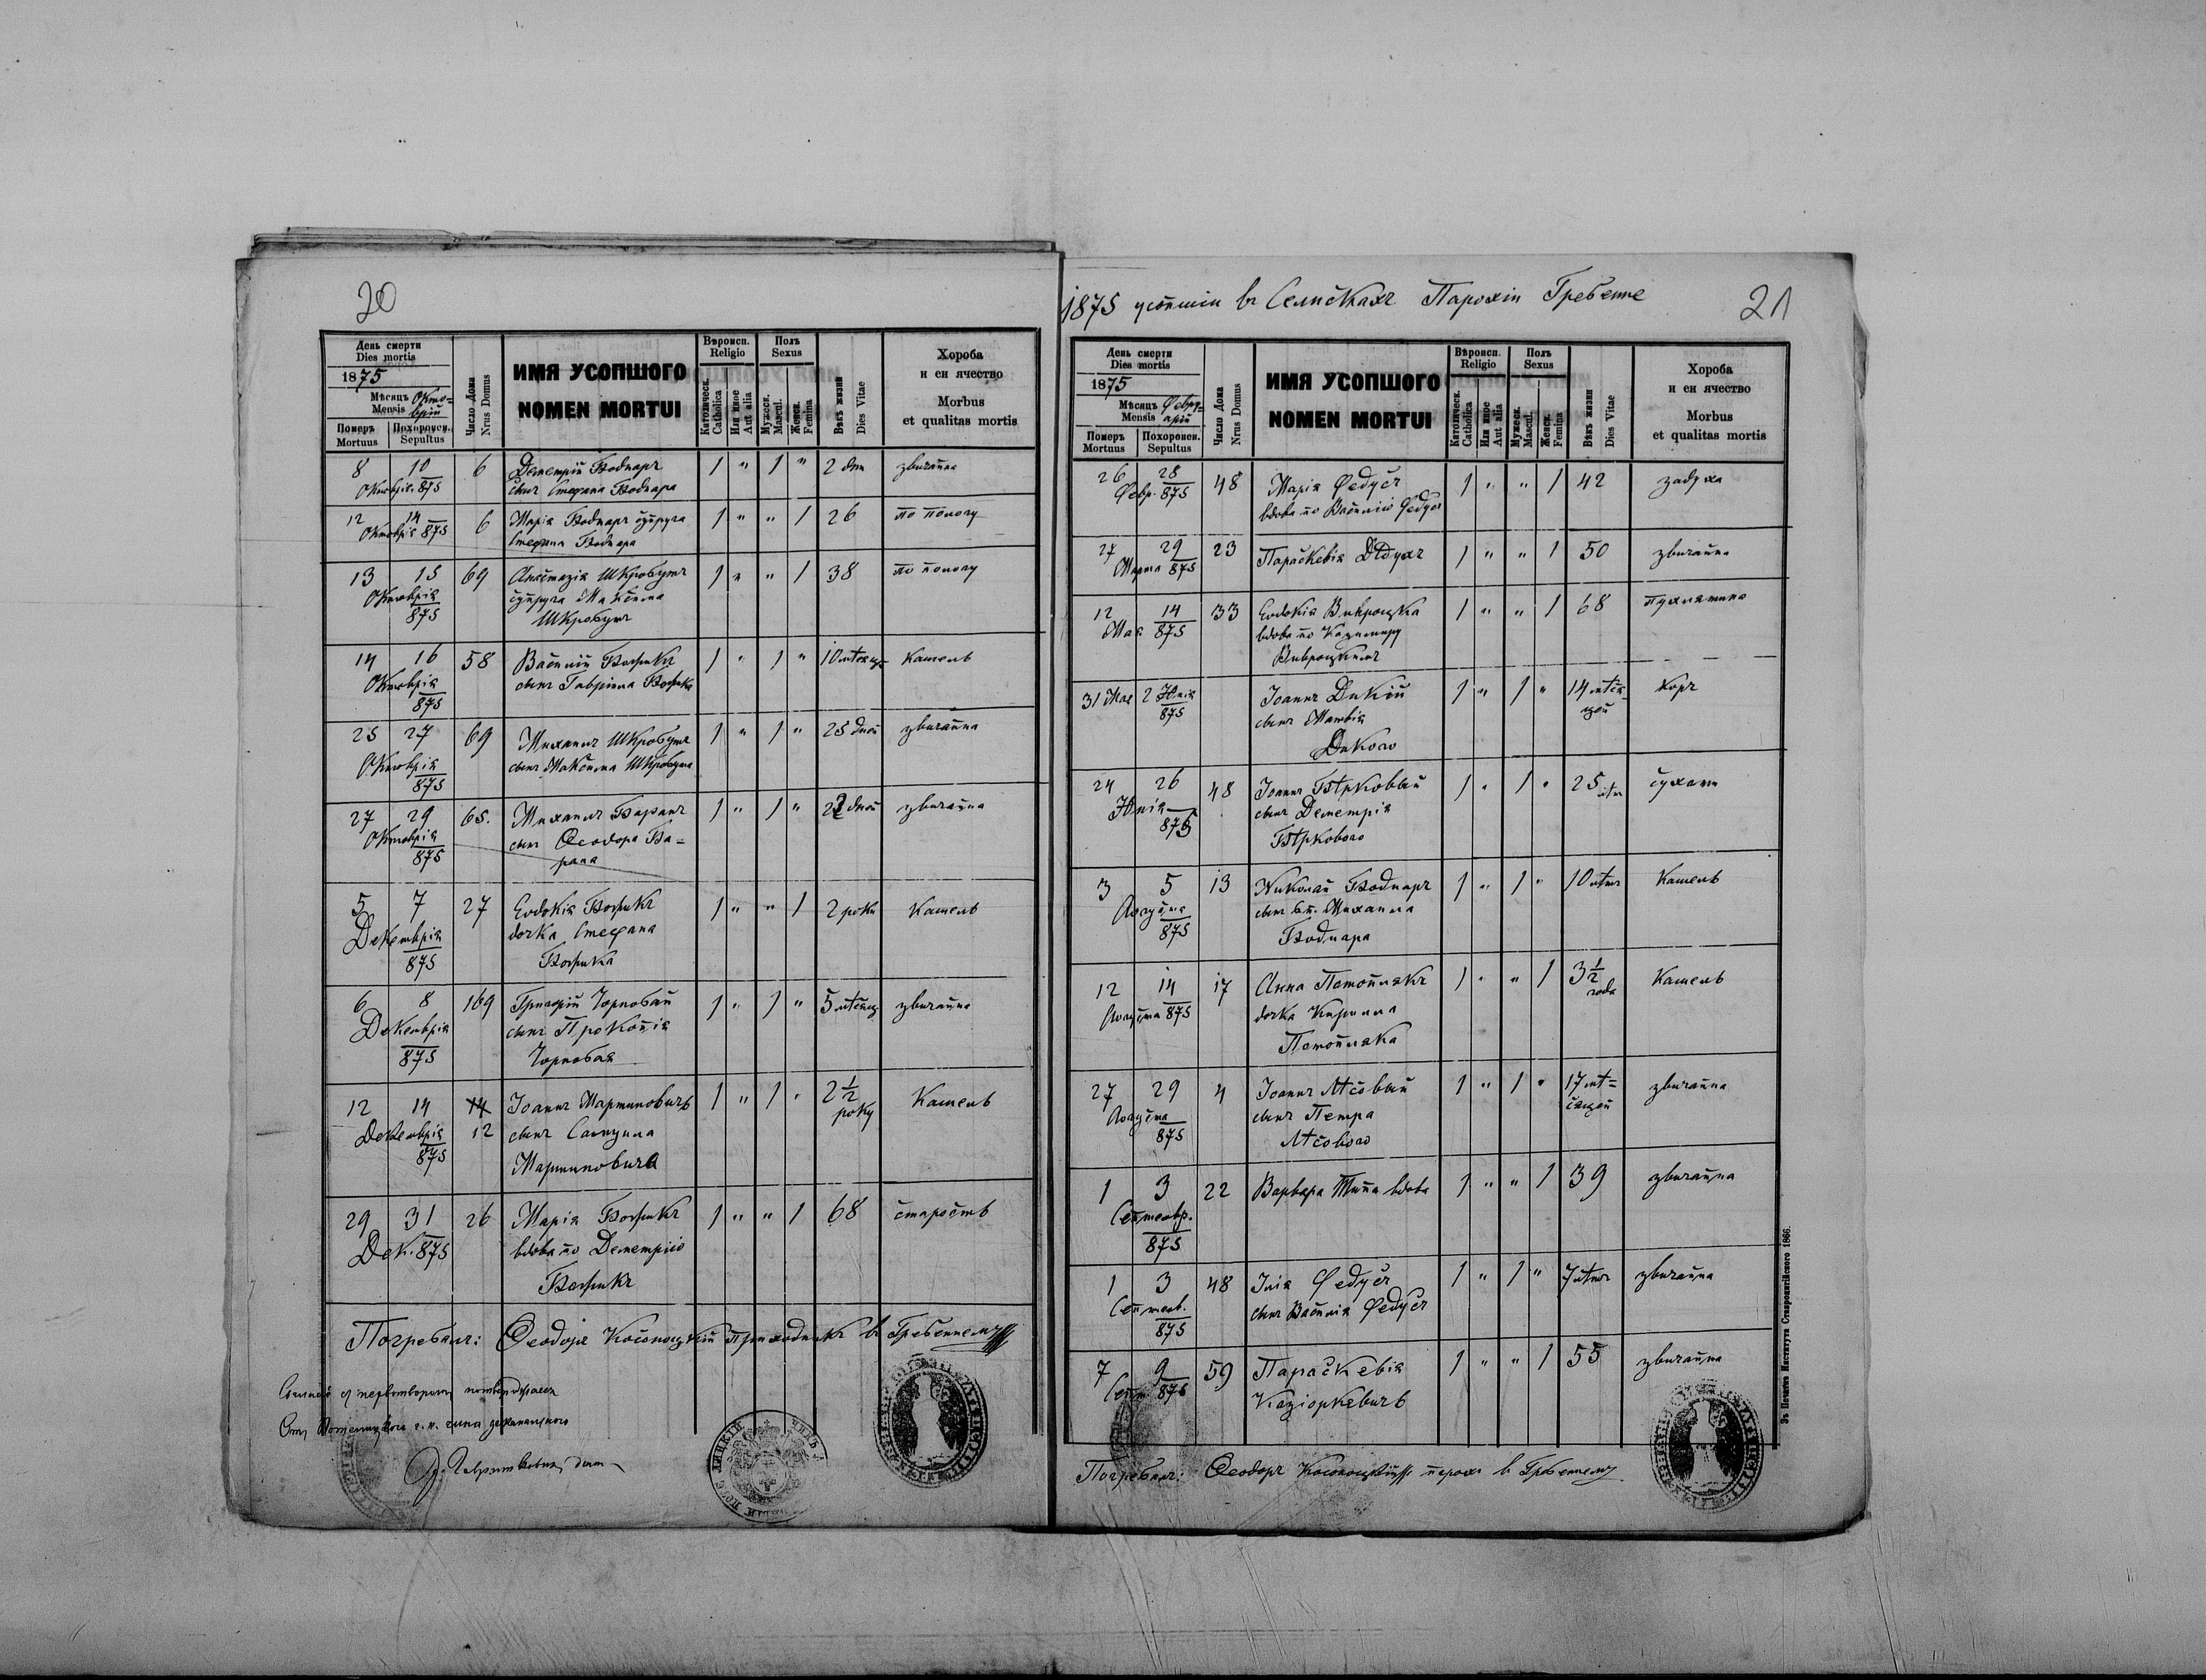 20
День смерти
Dies mortis
1875
Мѣсяцъ Окто=
Mensis врій
Померъ Похоронен.
Mortuus Sepultus
Число Дома
Nrus Domus
ИМЯ УСОПШОГО
NOMEN MORTUI
Вѣроисп.
Religio
Католическ.
Catholica
Или иное
Aut alia
Полъ
Sexus
Мужеск.
Mascul.
Женск.
Femina
Вѣкъ жизни
Dies Vitae
Хороба
и еи ячество
Morbus
et qualitas mortis
8 10 6 Деметрій Боднаръ 1 " 1 " 2 дни звичайна
Октоврія 875 сынъ Стефана Боднара
12 14 6 Марія Боднаръ супруга 1 " " 1 26 по пологу
Октоврія 875 Стефана Боднара
13 15 69 Анастазія Шкробутъ 1 " " 1 38 по пологу
Октоврія супруга Максима
875 Шкробутъ
14 16 58 Василій 1 " 1 " 10 Кашель
Октоврія сынъ Гавріила
875
25 27 69 Михаилъ Шкробутъ 1 " 1 " 25 дней звичайна
Октоврія сынъ Максима Шкробута
875
27 29 65. Михаилъ Баранъ 1 " 1 " 22 дней звичайна
Октоврія сын Ѳеодора Ба=
875 рана
5 7 27 Евдокія 1 " " 1 2 роки Кашель
Декемврія дочка Стефана
875
6 8 169 Григорій Чорнобай 1 " 1 " 5 мѣсяц. звичайна
Декемврія сынъ Прокопія
875 Чорнобая
12 14 14 Іоаннъ Мартиновичъ 1 " 1 " 2 1/2 Кашель
Декемврія 12 сынъ Самуила року
875 Мартиновича
29 31 26 Марія 1 " " 1 68 старость
Дек. 875 вдова по Деметрію
Погребалъ: Ѳеодоръ Косоноцкій Приходникъ в Гребенному
1875 усопшіи въ Селискахъ Парохіи Гребенне 21
День смерти
Dies mortis
1875
Мѣсяцъ Февру=
Mensis арій
Померъ Похоронен.
Mortuus Sepultus
Число Дома
Nrus Domus
ИМЯ УСОПШОГО
NOMEN MORTUI
Вѣроисп.
Religio
Католическ.
Catholica
Или иное
Aut alia
Полъ
Sexus
Мужеск.
Mascul.
Женск.
Femina
Вѣкъ жизни
Dies Vitae
Хороба
и еи ячество
Morbus
et qualitas mortis
26 28 48 Марія Федусъ 1 " " 1 42 задуха
Февр. 875 вдова по Василію Федусъ
27 29 23 Параскевія Дѣдухъ 1 " " 1 50 звичайна
Марта 875
12 14 33 Евдокія 1 " " 1 68 пухлятина
Мая 875 вдова по Казимиру
31 Мая 2 Юнія Іоаннъ Дикій 1 " 1 " 14 мѣся= коръ
875 сынъ Матвія цей
Дикого
24 26 48 Іоаннъ Бѣрковый 1 " 1 " 25 лѣтъ сухоти
Юнія сынъ Деметрія
875 Бѣркового
3 5 13 Николай Боднаръ 1 " 1 " 10 лѣтъ Кашель
Августа сынъ бл. Михаила
875 Боднара
12 14 17 Анна 1 " " 1 3 1/2 Кашель
Августа 875 дочка Кирилла года
27 29 4 Іоаннъ Лѣсовый 1 " 1 " 17 мѣ= звичайна
Августа сынъ Петра сяцей
875 Лѣсового
1 3 22 Варвара вдова 1 " " 1 39 звичайна
Септемвр.
875
1 3 48 Ілія Федусъ 1 " 1 " 7 лѣтъ звичайна
Септемв. сынъ Василія Федусъ
875
7 9 59 Параскевія 1 " " 1 55 звичайна
Септ. 875 Казіоркевичъ
Погребалъ: Ѳеодоръ Косоноцкій парохъ в Гребенному
Зъ Печатнѣ Института Ставропигійского 1866.